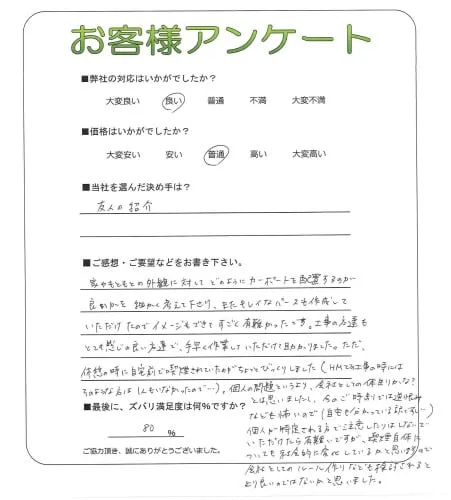 お客様アンケート
■弊社の対応はいかがでしたか？
大変良い 良い 普通 不満 大変不満
■価格はいかがでしたか？
大変安い 安い 普通 高い 大変高い
■当社を選んだ決め手は？
友人の紹介
■ご感想・ご要望などをお書き下さい。
家やもともとの外観に対して どのようにカーポートを配置するのが
良いかを 細かく考えて下さり、またキレイなパースも作成して
いただけたのでイメージもできてすごく有難かったです。工事の方達も
とても感じの良い方達で、手早く作業していただけて助かりました。ただ、
休憩の時に自宅前で喫煙されていたのがちょっとびっくりしました（HMでの工事の時には
そのような方は1人もいなかったので…）。個人の問題というより、会社としての体質かな？
とは思いましたし、今のご時世では
なども怖いので（自宅も分かっている訳ですし…）
個人が特定される方で注意したりはしないで
いただけたら有難いですが、喫煙自体に
ついても社会的に変化していると思いますので
会社としてのルール作りなども検討されると
より良いのではないかと思いました。
■最後に、ズバリ満足度は何％ですか？
80 ％
ご協力頂き、誠にありがとうございました。